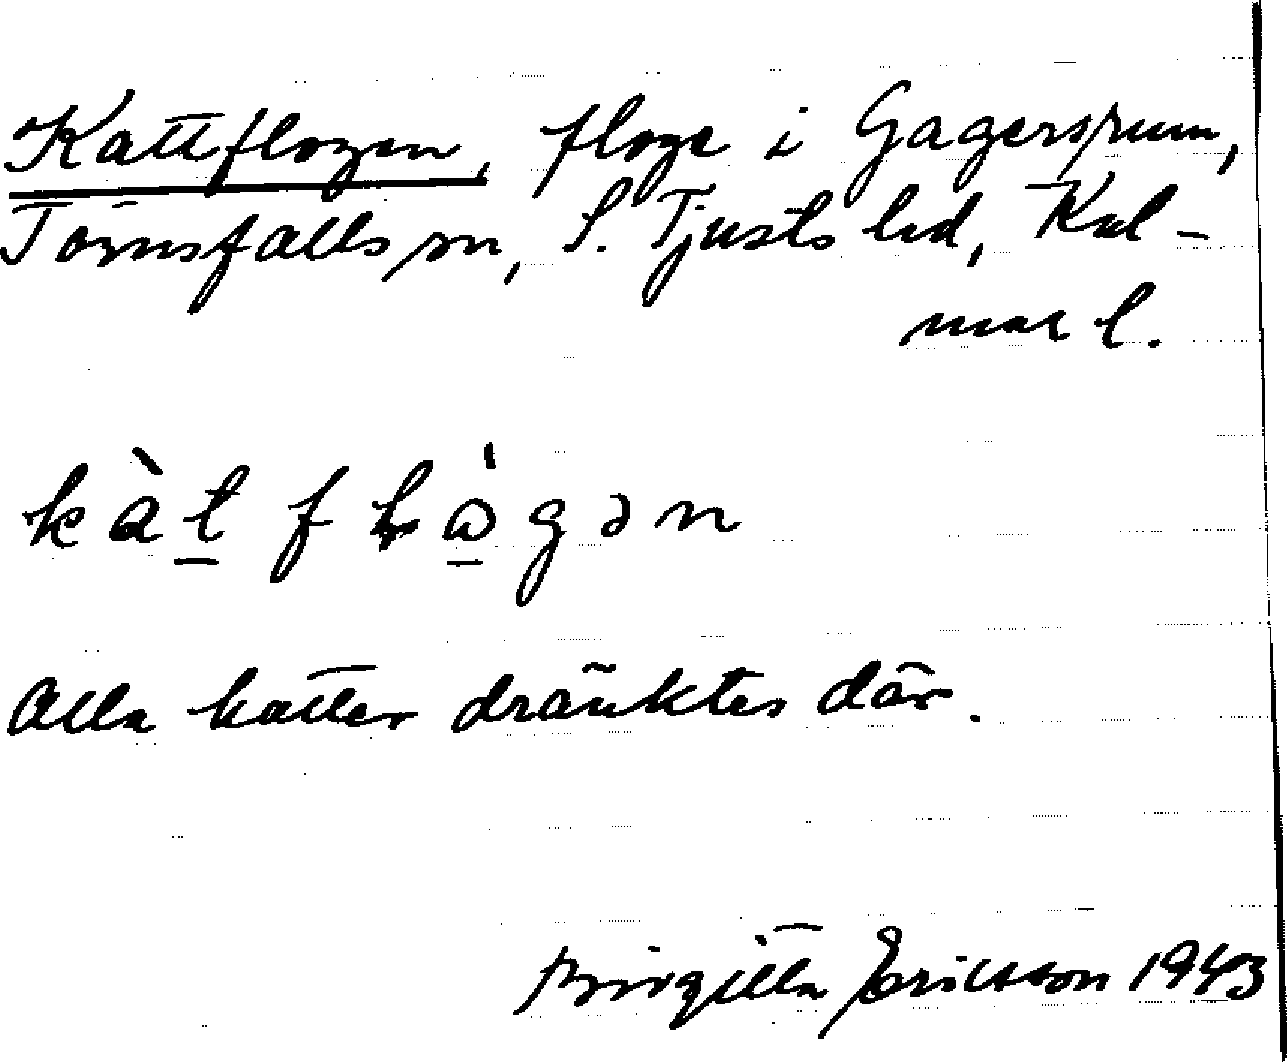 Kattflogen, floge i Gagersrum,
Törnsfalls sn, S. Tjusts hd, Kal-
mar l.
kàt f ɬ ὼ g ə n
Alla katter dränktes där.
Birgitta Ericsson 1943